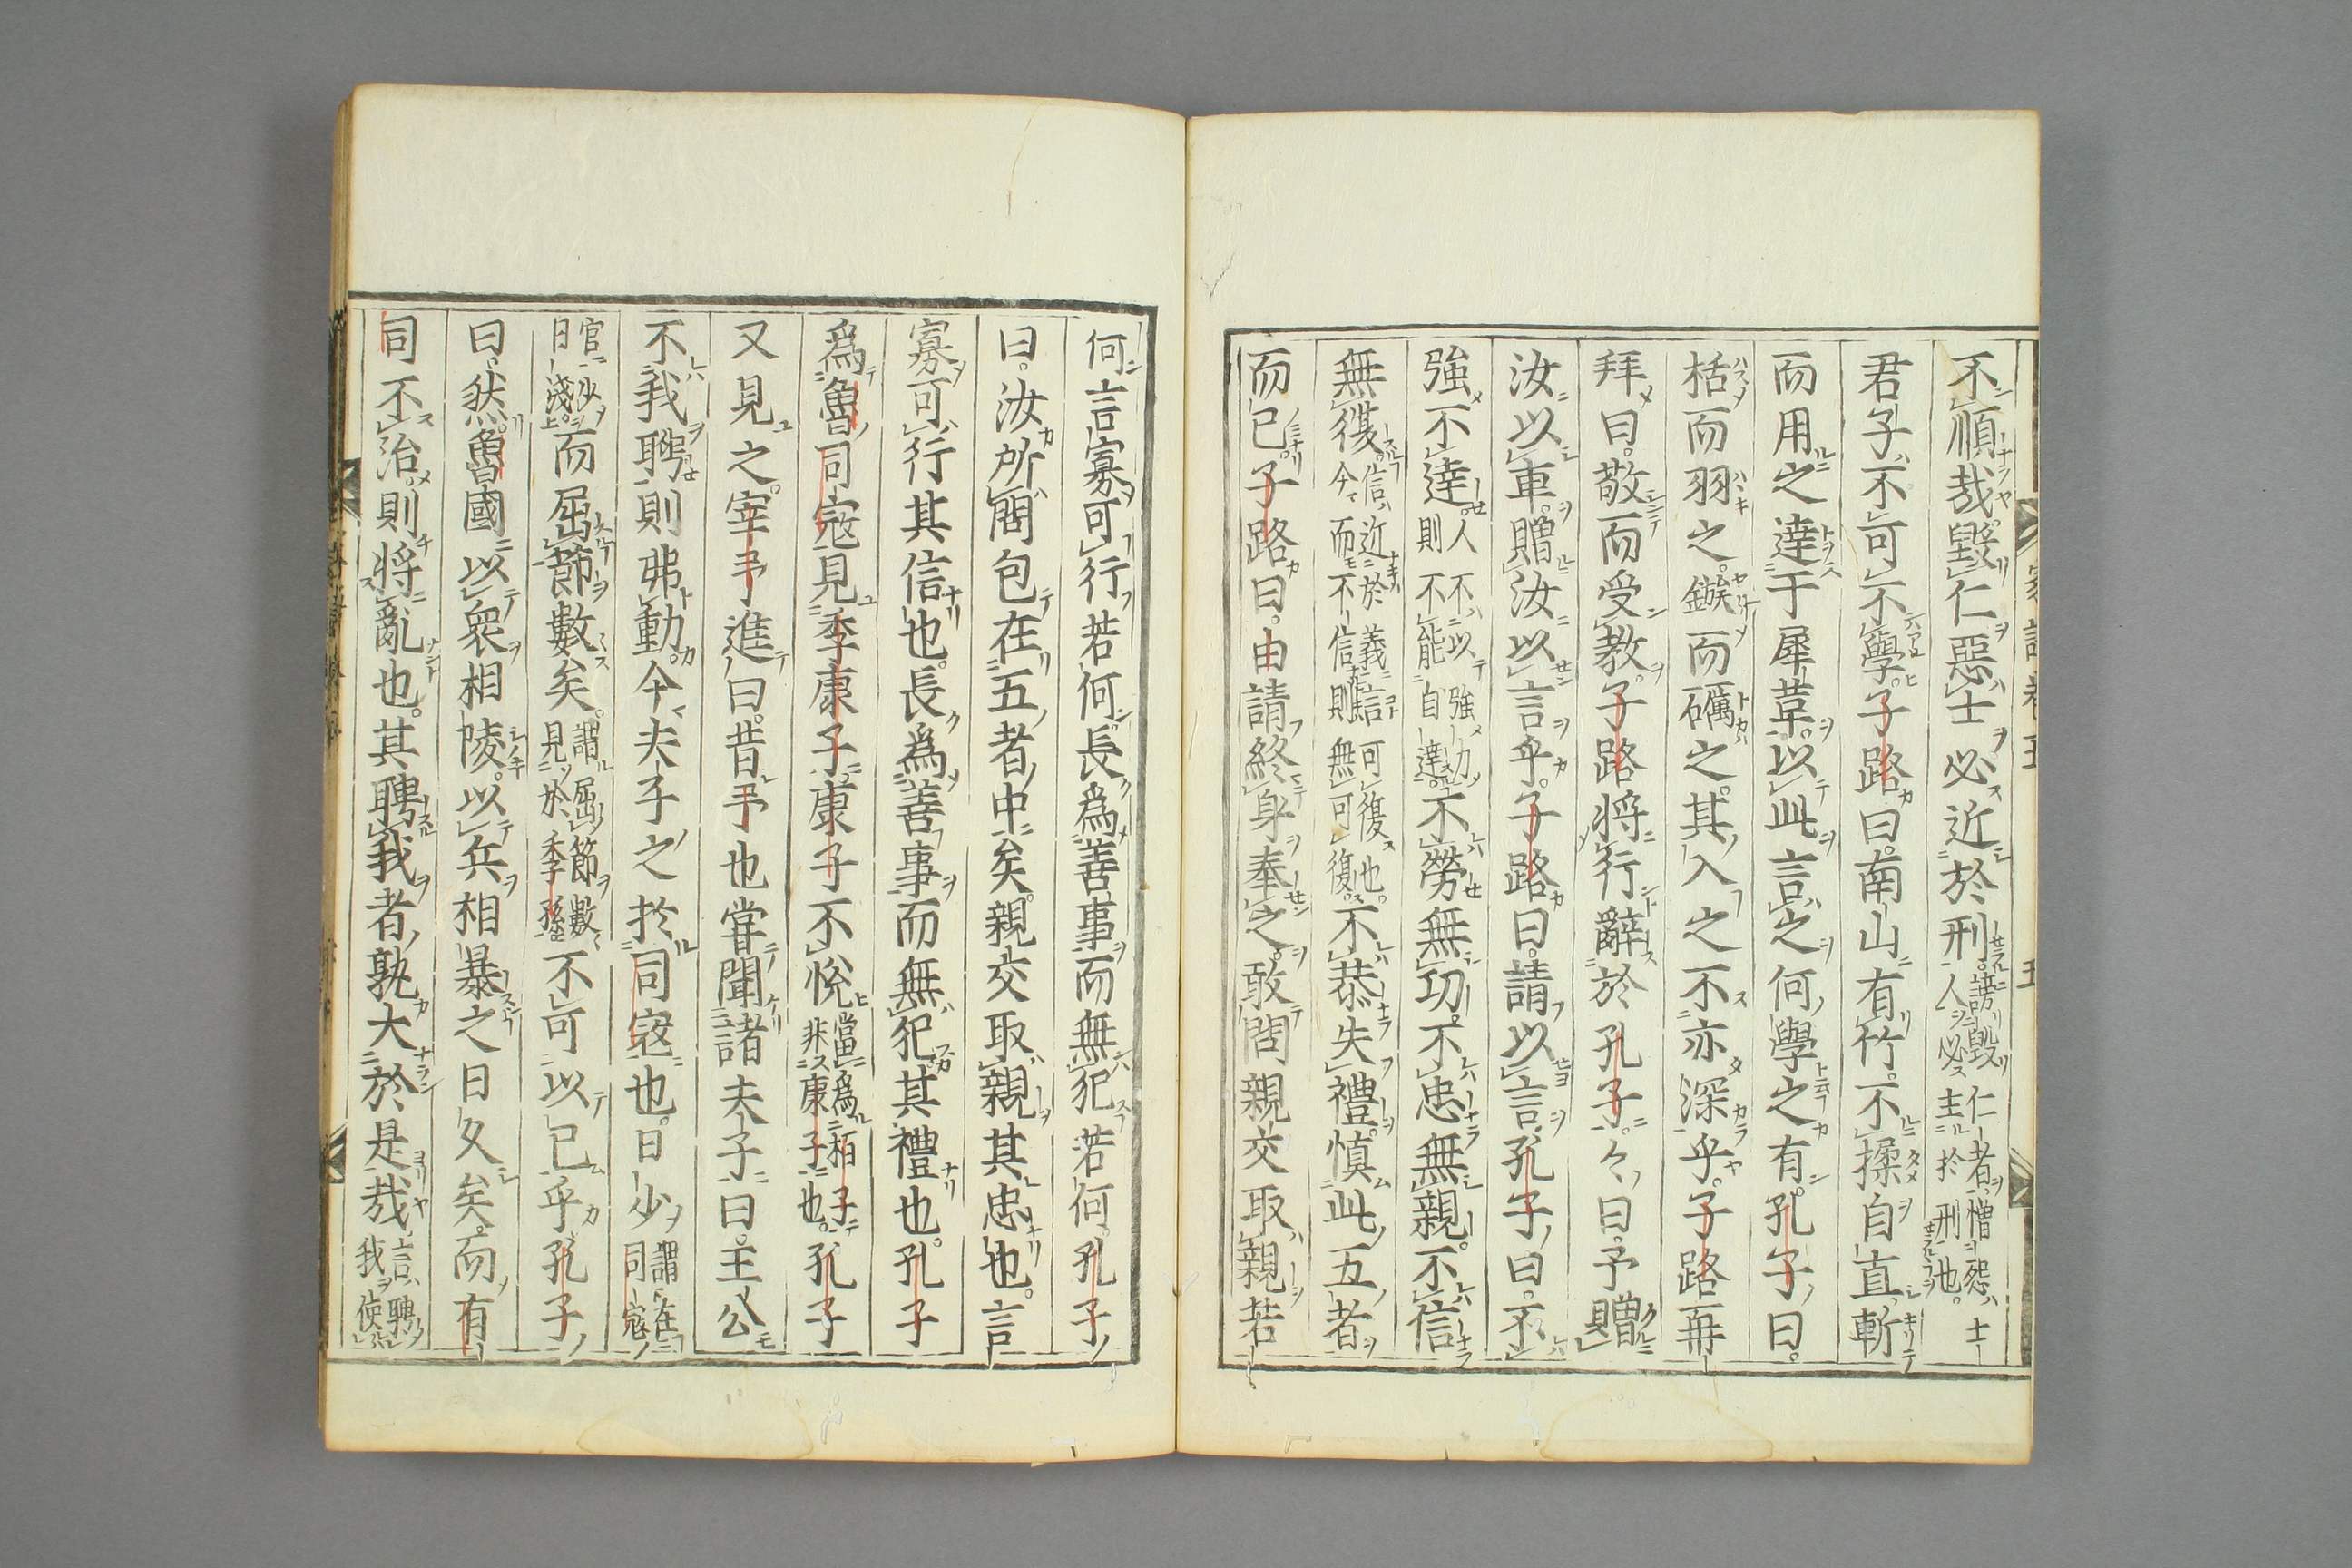 不順哉毀仁惡士必近於刑謗毀仁者憎怨士人必主於刑也
君子不可不學子路曰南山有竹不揉自直斬
而用之達于犀革以此言之何學之有孔子曰
栝而羽之鏃而礪之其入之不亦深乎子路再
拜曰敬而受教子路將行辭於孔子々曰予贈
汝以車贈汝以言乎子路曰請以言孔子曰不
強不達人不以強力則不能自達不勞無功不忠無親不信
無復信近於義言可復也今而不信則無可復不恭失禮慎此五者
而已子路曰由請終身奉之敢問親交取親若
何言寡可行若何長為善事而無犯若何孔子
曰汝所問包在五者中矣親交取親其忠也言
寡可行其信也長為善事而無犯其禮也孔子
為魯司寇見季康子康子不悅當為桓子非康子也孔子
又見之宰予進曰昔予也嘗聞諸夫子曰王公
不我聘則弗動今夫子之於司寇也日少謂在司寇
官少日淺而屈節數矣謂屈節數見於季孫不可以已乎孔子
曰然魯國以衆相陵以兵相暴之日久矣而有
司不治則將亂也其聘我者孰大於是哉言聘我使